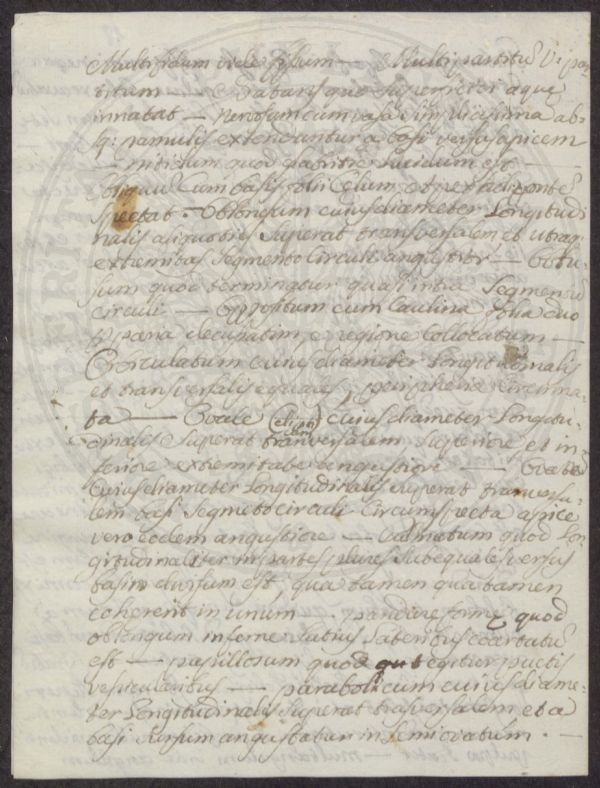 Multifidum vide fissum — Multipartitũ V: par
titum — natans quod superficiei aque
innatat — nervosum cum vasa simplicissima ab
sq: ramulis extenduntur a basi versus apicem
— nitidum quod glabritie lucidum est —
Obliquũ Cum basis folii Celum, et
spectat. Oblongum cuius diameter Longitudi
nalis aliquoties superat transversalem et utraq
extremitas segmento circuli angustior — Obtu
sum quod terminatur quasi intra segmentũ
circuli — Oppositum cum Caulina folia duo
paria decusatim, e regione Collocatum —
Orbiculatum cuius diameter Longitudinalis
et transversalis equales, peripheria circina
ta — Ovale cuius diameter Longitu
dinales superat transversalem superiore et in
feriore extremitate angustiore — Ovatũ
Cuius diameter Longitudinalis superat transversa
lem basi segmeto circuli Circumspecta apice
vero eodem angustiore — Palmatum quod Lon
gitudinaliter in partes plures subequales versus
basin divisum est, qua tamen qua tamen
coherent in unum — pandure forme quod
oblongum inferne latius lateribus coartatũ
est — papillosum quod tegitur puctis
vesicularibus — parabolicum cuius diame
ter Longitudinalis superat trasversalem et a
basi sursum angustatur in semiovatum. —